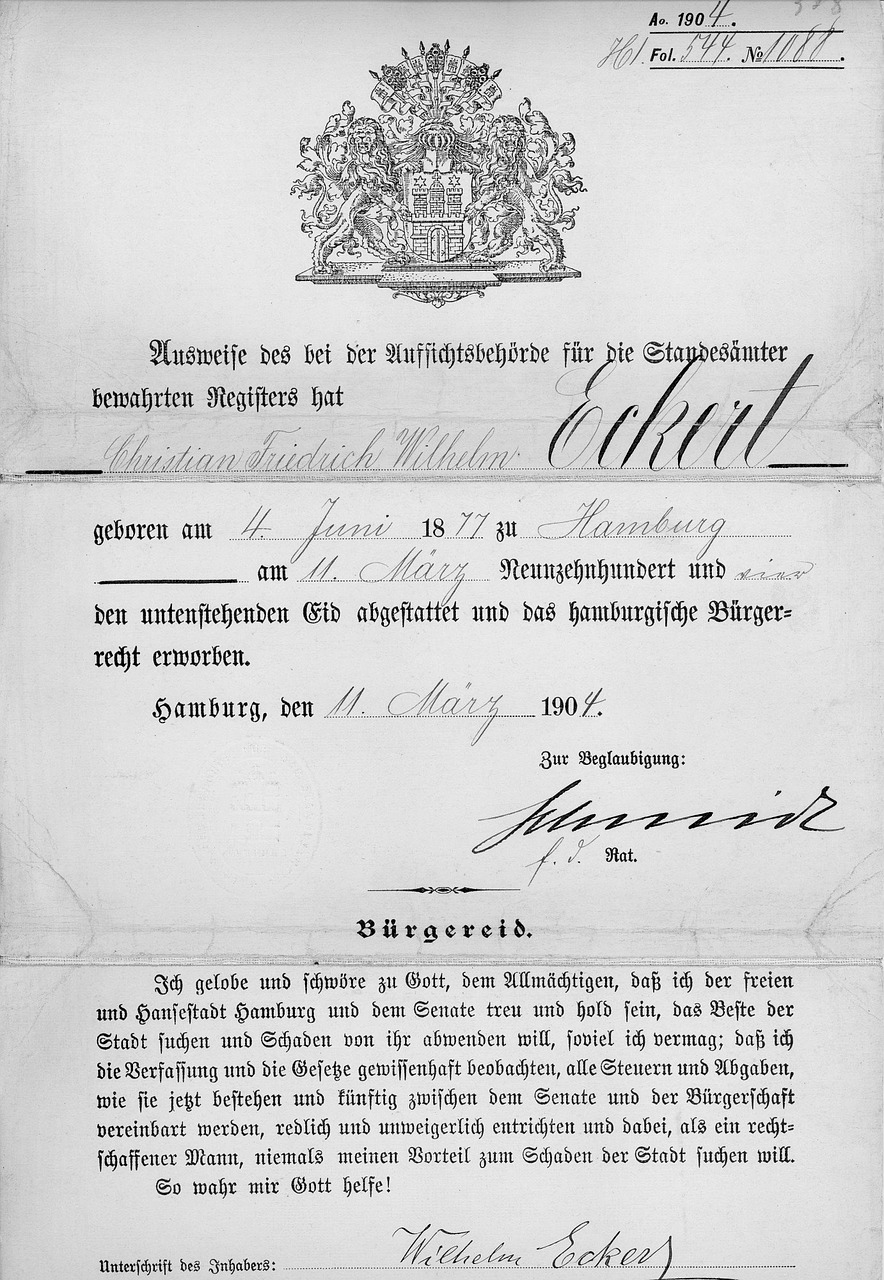 Ao. 1904.
H1. Fol. 544. No 1088.
Ausweise des bei der Aufsichtsbehörde für die Standesämter
bewahrten Registers hat
Christian Friedrich Wilhelm Eckert
geboren am 4. Juni 1877 zu Hamburg
am 11. März Neunzehnhundert und vier
den untenstehenden Eid abgestattet und das hamburgische Bürger=
recht erworben.
Hamburg, den 11. März 1904.
Zur Beglaubigung:
Schmidt
f. d. Rat.
Bürgereid.
Ich gelobe und schwöre zu Gott, dem Allmächtigen, daß ich der freien
und Hansestadt Hamburg und dem Senate treu und hold sein, das Beste der
Stadt suchen und Schaden von ihr abwenden will, soviel ich vermag; daß ich
die Verfassung und die Gesetze gewissenhaft beobachten, alle Steuern und Abgaben,
wie sie jetzt bestehen und künftig zwischen dem Senate und der Bürgerschaft
vereinbart werden, redlich und unweigerlich entrichten und dabei, als ein recht=
schaffener Mann, niemals meinen Vorteil zum Schaden der Stadt suchen will.
So wahr mir Gott helfe!
Unterschrift des Inhabers: Wilhelm Eckert